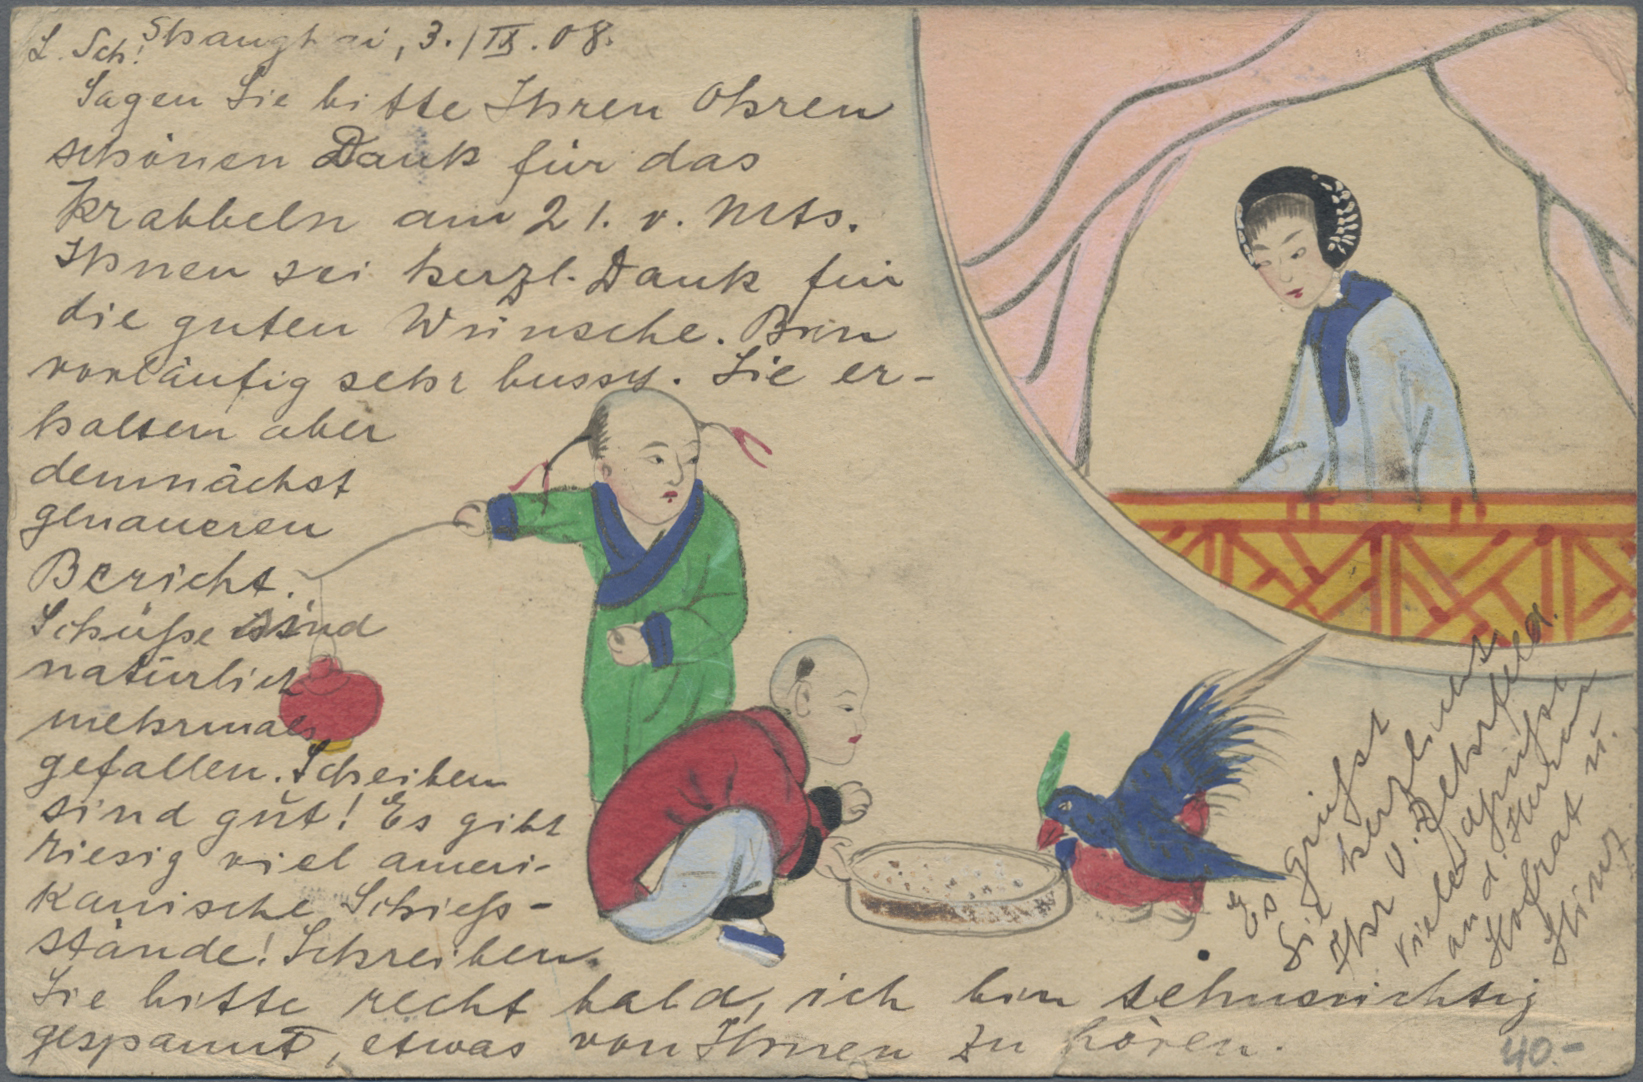 L. Sch! Shanghai, 3./IX.08.
Sagen Sie bitte Ihren Ohren
schönen Dank für das
Krabbeln am 21. v. Mts.
Ihnen sei herzl. Dank für
die guten Wünsche. Bin
vorläufig sehr bussy. Sie er-
halten aber
demnächst
genaueren
Bericht.
Schüße sind
natürlich
mehrmals
gefallen. Scheiben
sind gut! Es gibt
riesig viel ameri-
kanische Schieß-
stände! Schreiben
Sie bitte recht bald, ich bin sehnsüchtig
gespannt, etwas von Ihnen zu hören.
Es grüßt
Sie herzlichst
Ihr v.
viele
an d. Herrn
Hofrat u.
40.-